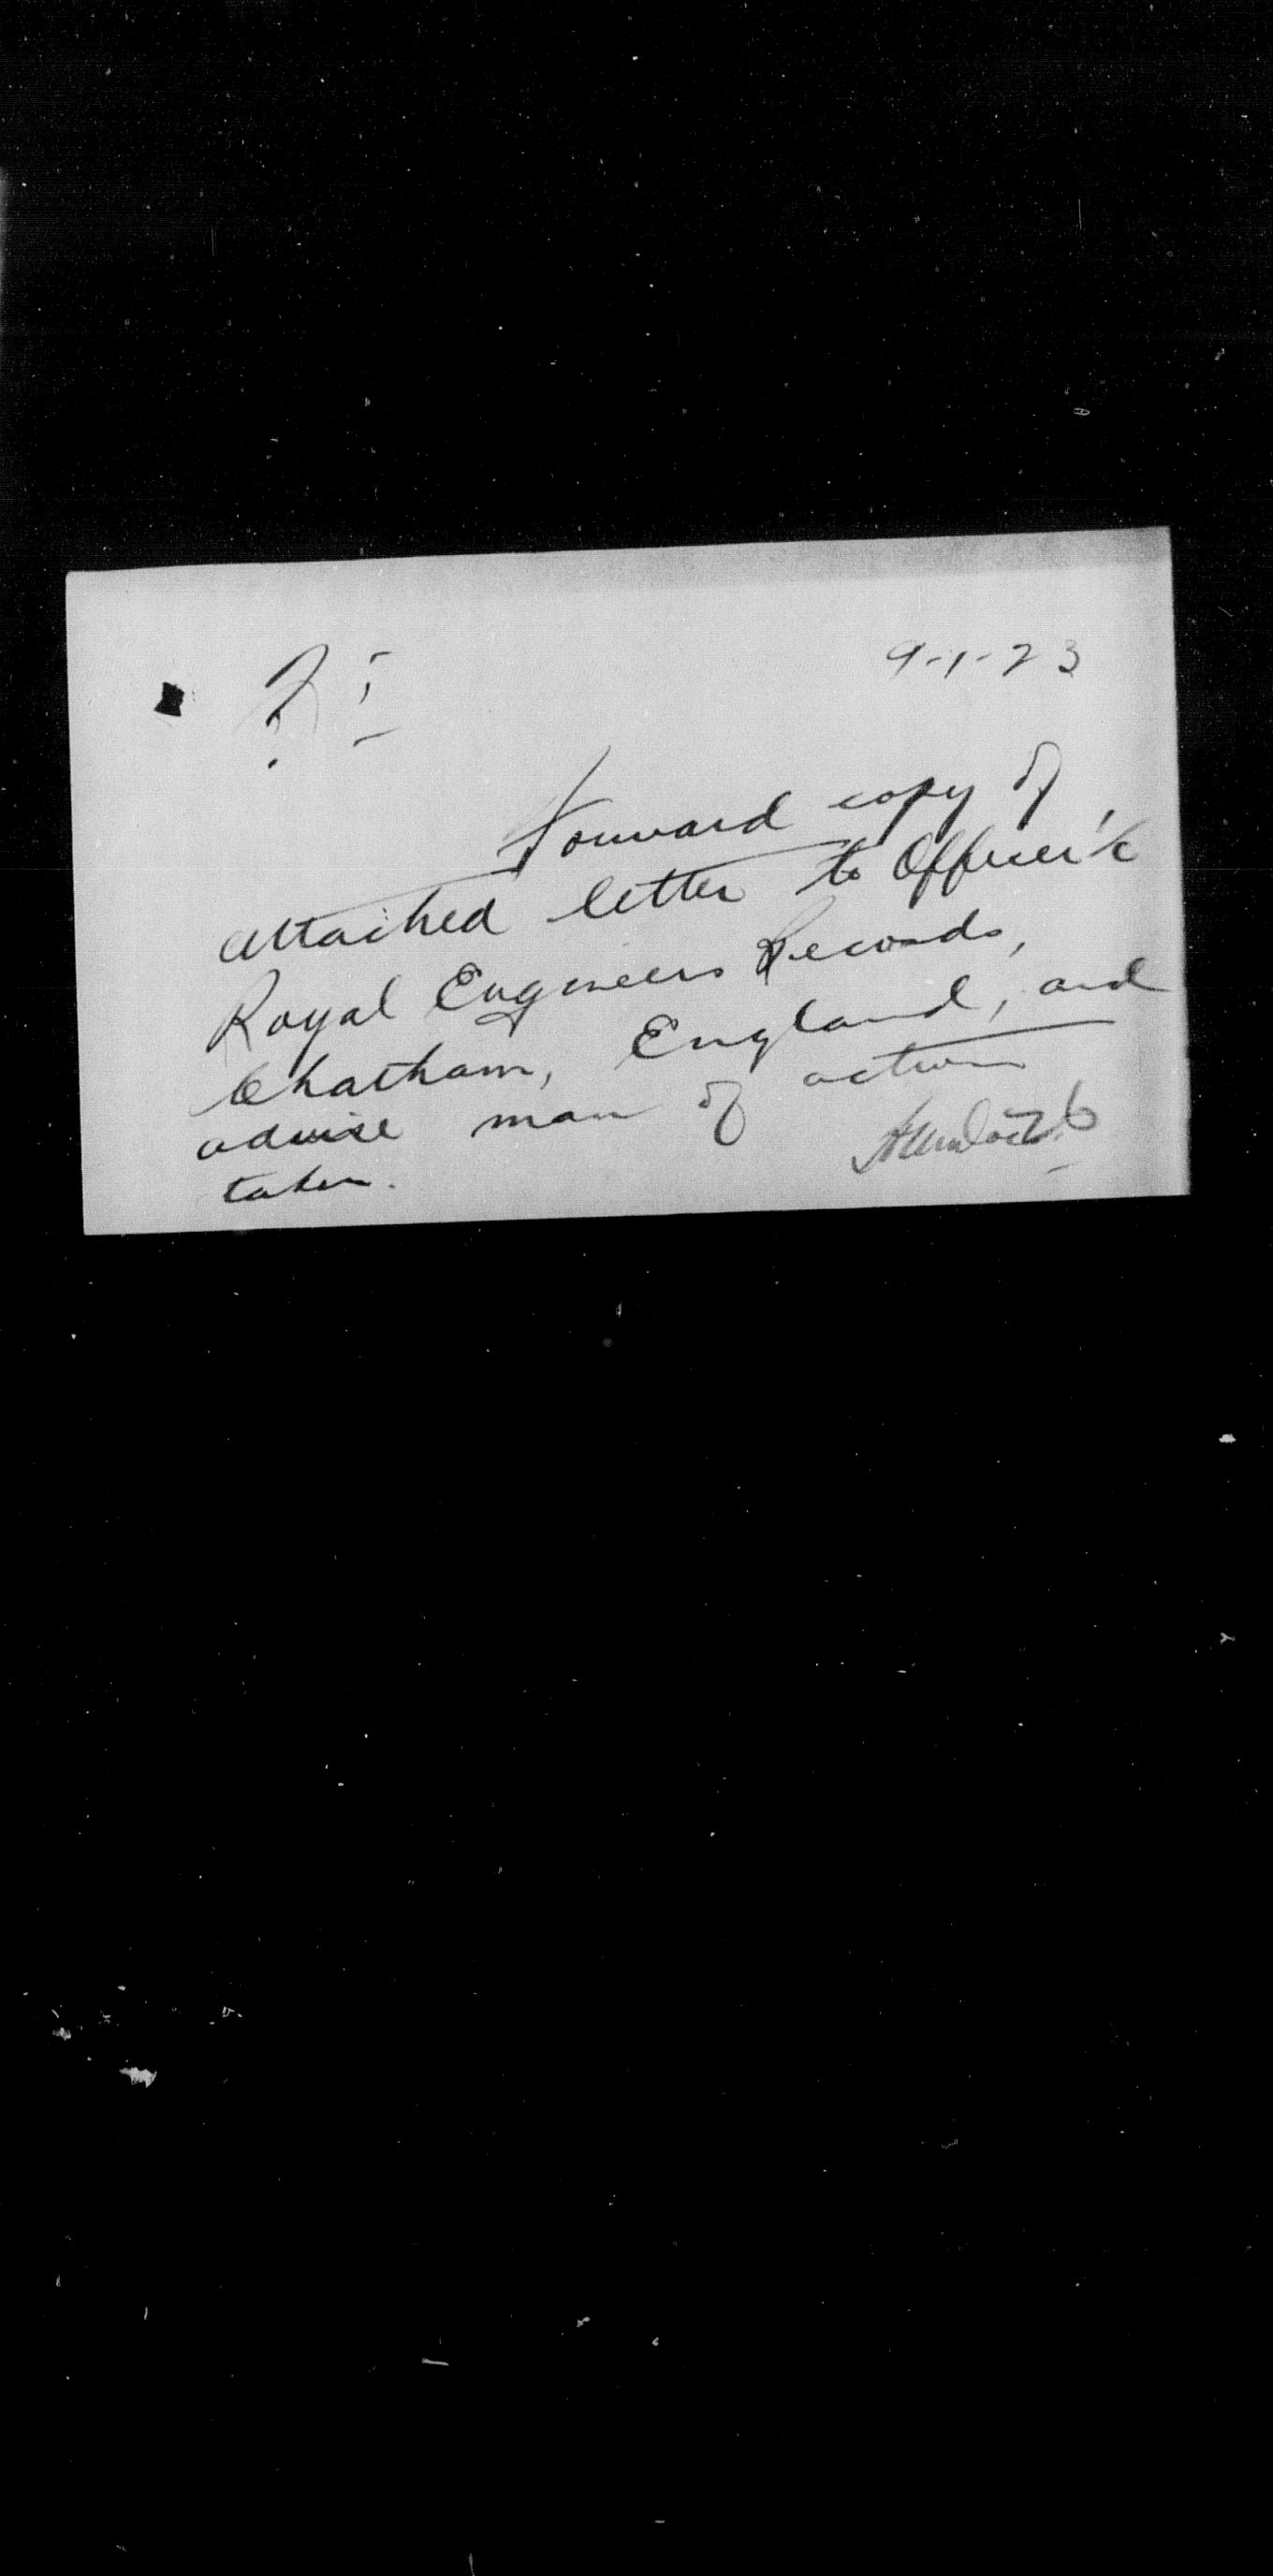 9-1-23
Forward copy of
attached letter to Officer i/c
Royal Engineers Records,
Chatham, England, and
advise man of action
taken.